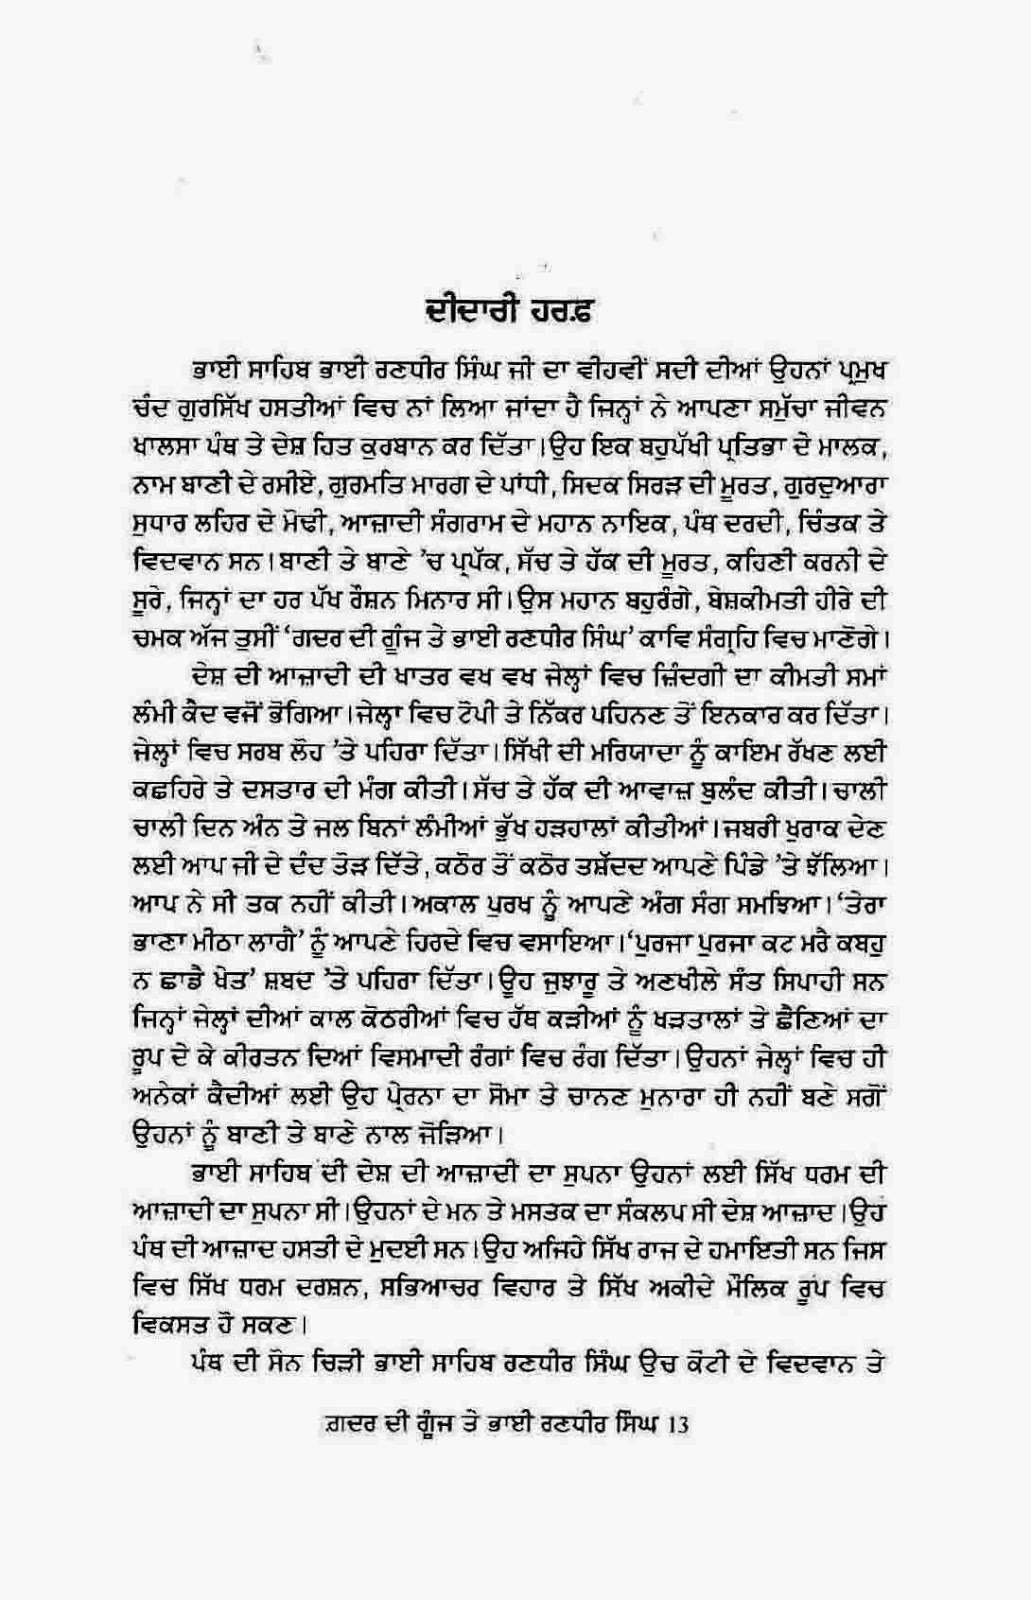 ਦੀਦਾਰੀ ਹਰਫ਼
ਭਾਈ ਸਾਹਿਬ ਭਾਈ ਰਣਧੀਰ ਸਿੰਘ ਜੀ ਦਾ ਵੀਹਵੀਂ ਸਦੀ ਦੀਆਂ ਉਹਨਾਂ ਪ੍ਰਮੁਖ
ਚੰਦ ਗੁਰਸਿੱਖ ਹਸਤੀਆਂ ਵਿਚ ਨਾਂ ਲਿਆ ਜਾਂਦਾ ਹੈ ਜਿਨ੍ਹਾਂ ਨੇ ਆਪਣਾ ਸਮੁੱਚਾ ਜੀਵਨ
ਖਾਲਸਾ ਪੰਥ ਤੇ ਦੇਸ਼ ਹਿਤ ਕੁਰਬਾਨ ਕਰ ਦਿੱਤਾ। ਉਹ ਇਕ ਬਹੁਪੱਖੀ ਪ੍ਰਤਿਭਾ ਦੇ ਮਾਲਕ,
ਨਾਮ ਬਾਣੀ ਦੇ ਰਸੀਏ, ਗੁਰਮਤਿ ਮਾਰਗ ਦੇ ਪਾਂਧੀ, ਸਿਦਕ ਸਿਰੜ ਦੀ ਮੂਰਤ, ਗੁਰਦੁਆਰਾ
ਸੁਧਾਰ ਲਹਿਰ ਦੇ ਮੋਢੀ, ਆਜ਼ਾਦੀ ਸੰਗਰਾਮ ਦੇ ਮਹਾਨ ਨਾਇਕ, ਪੰਥ ਦਰਦੀ, ਚਿੰਤਕ ਤੇ
ਵਿਦਵਾਨ ਸਨ। ਬਾਣੀ ਤੇ ਬਾਣੇ 'ਚ ਪ੍ਰਪੱਕ, ਸੱਚ ਤੇ ਹੱਕ ਦੀ ਮੂਰਤ, ਕਹਿਣੀ ਕਰਨੀ ਦੇ
ਸੂਰੇ, ਜਿਨ੍ਹਾਂ ਦਾ ਹਰ ਪੱਖ ਰੌਸ਼ਨ ਮਿਨਾਰ ਸੀ। ਉਸ ਮਹਾਨ ਬਹੁਰੰਗੇ, ਬੇਸ਼ਕੀਮਤੀ ਹੀਰੇ ਦੀ
ਚਮਕ ਅੱਜ ਤੁਸੀਂ 'ਗਦਰ ਦੀ ਗੂੰਜ ਤੇ ਭਾਈ ਰਣਧੀਰ ਸਿੰਘ' ਕਾਵਿ ਸੰਗ੍ਰਹਿ ਵਿਚ ਮਾਣੋਗੇ।
ਦੇਸ਼ ਦੀ ਆਜ਼ਾਦੀ ਦੀ ਖਾਤਰ ਵਖ ਵਖ ਜੇਲ੍ਹਾਂ ਵਿਚ ਜ਼ਿੰਦਗੀ ਦਾ ਕੀਮਤੀ ਸਮਾਂ
ਲੰਮੀ ਕੈਦ ਵਜੋਂ ਭੋਗਿਆ। ਜੇਲ੍ਹਾ ਵਿਚ ਟੋਪੀ ਤੇ ਨਿੱਕਰ ਪਹਿਨਣ ਤੋਂ ਇਨਕਾਰ ਕਰ ਦਿੱਤਾ।
ਜੇਲ੍ਹਾਂ ਵਿਚ ਸਰਬ ਲੋਹ 'ਤੇ ਪਹਿਰਾ ਦਿੱਤਾ। ਸਿੱਖੀ ਦੀ ਮਰਿਯਾਦਾ ਨੂੰ ਕਾਇਮ ਰੱਖਣ ਲਈ
ਕਛਹਿਰੇ ਤੇ ਦਸਤਾਰ ਦੀ ਮੰਗ ਕੀਤੀ। ਸੱਚ ਤੇ ਹੱਕ ਦੀ ਆਵਾਜ਼ ਬੁਲੰਦ ਕੀਤੀ। ਚਾਲੀ
ਚਾਲੀ ਦਿਨ ਅੰਨ ਤੇ ਜਲ ਬਿਨਾਂ ਲੰਮੀਆਂ ਭੁੱਖ ਹੜਹਾਲਾਂ ਕੀਤੀਆਂ। ਜਬਰੀ ਖੁਰਾਕ ਦੇਣ
ਲਈ ਆਪ ਜੀ ਦੇ ਦੰਦ ਤੋੜ ਦਿੱਤੇ, ਕਠੋਰ ਤੋਂ ਕਠੋਰ ਤਸ਼ੱਦਦ ਆਪਣੇ ਪਿੰਡੇ 'ਤੇ ਝੱਲਿਆ।
ਆਪ ਨੇ ਸੀ ਤਕ ਨਹੀਂ ਕੀਤੀ। ਅਕਾਲ ਪੁਰਖ ਨੂੰ ਆਪਣੇ ਅੰਗ ਸੰਗ ਸਮਝਿਆ। 'ਤੇਰਾ
ਭਾਣਾ ਮੀਠਾ ਲਾਗੈ' ਨੂੰ ਆਪਣੇ ਹਿਰਦੇ ਵਿਚ ਵਸਾਇਆ। 'ਪੁਰਜਾ ਪੁਰਜਾ ਕਟ ਮਰੈ ਕਬਹੁ
ਨ ਛਾਡੈ ਖੇਤ' ਸ਼ਬਦ 'ਤੇ ਪਹਿਰਾ ਦਿੱਤਾ। ਊਹ ਜੁਝਾਰੂ ਤੇ ਅਣਖੀਲੇ ਸੰਤ ਸਿਪਾਹੀ ਸਨ
ਜਿਨ੍ਹਾਂ ਜੇਲ੍ਹਾਂ ਦੀਆਂ ਕਾਲ ਕੋਠਰੀਆਂ ਵਿਚ ਹੱਥ ਕੜੀਆਂ ਨੂੰ ਖੜਤਾਲਾਂ ਤੇ ਛੈਣਿਆਂ ਦਾ
ਰੂਪ ਦੇ ਕੇ ਕੀਰਤਨ ਦਿਆਂ ਵਿਸਮਾਦੀ ਰੰਗਾਂ ਵਿਚ ਰੰਗ ਦਿੱਤਾ। ਉਹਨਾਂ ਜੇਲ੍ਹਾਂ ਵਿਚ ਹੀ
ਅਨੇਕਾਂ ਕੈਦੀਆਂ ਲਈ ਉਹ ਪ੍ਰੇਰਨਾ ਦਾ ਸੋਮਾ ਤੇ ਚਾਨਣ ਮੁਨਾਰਾ ਹੀ ਨਹੀਂ ਬਣੇ ਸਗੋਂ
ਉਹਨਾਂ ਨੂੰ ਬਾਣੀ ਤੇ ਬਾਣੇ ਨਾਲ ਜੋੜਿਆ।
ਭਾਈ ਸਾਹਿਬ ਦੀ ਦੇਸ਼ ਦੀ ਆਜ਼ਾਦੀ ਦਾ ਸੁਪਨਾ ਉਹਨਾਂ ਲਈ ਸਿੱਖ ਧਰਮ ਦੀ
ਆਜ਼ਾਦੀ ਦਾ ਸੁਪਨਾ ਸੀ। ਉਹਨਾਂ ਦੇ ਮਨ ਤੇ ਮਸਤਕ ਦਾ ਸੰਕਲਪ ਸੀ ਦੇਸ਼ ਆਜ਼ਾਦ। ਉਹ
ਪੰਥ ਦੀ ਆਜ਼ਾਦ ਹਸਤੀ ਦੇ ਮੁਦਈ ਸਨ। ਉਹ ਅਜਿਹੇ ਸਿੱਖ ਰਾਜ ਦੇ ਹਮਾਇਤੀ ਸਨ ਜਿਸ
ਵਿਚ ਸਿੱਖ ਧਰਮ ਦਰਸ਼ਨ, ਸਭਿਆਚਰ ਵਿਹਾਰ ਤੇ ਸਿੱਖ ਅਕੀਦੇ ਮੌਲਿਕ ਰੂਪ ਵਿਚ
ਵਿਕਸਤ ਹੋ ਸਕਣ।
ਪੰਥ ਦੀ ਸੋਨ ਚਿੜੀ ਭਾਈ ਸਾਹਿਬ ਰਣਧੀਰ ਸਿੰਘ ਉਚ ਕੋਟੀ ਦੇ ਵਿਦਵਾਨ ਤੇ
ਗ਼ਦਰ ਦੀ ਗੂੰਜ ਤੇ ਭਾਈ ਰਣਧੀਰ ਸਿੰਘ 13